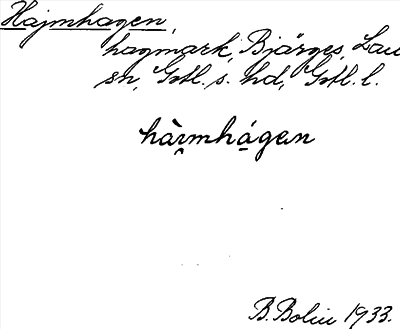 Hajmhagen,
hagmark, Bjärges, Lau
sn, Gotl. s. hd, Gotl. l.
hàı̯mhá̤gen
B. Bolin 1933.